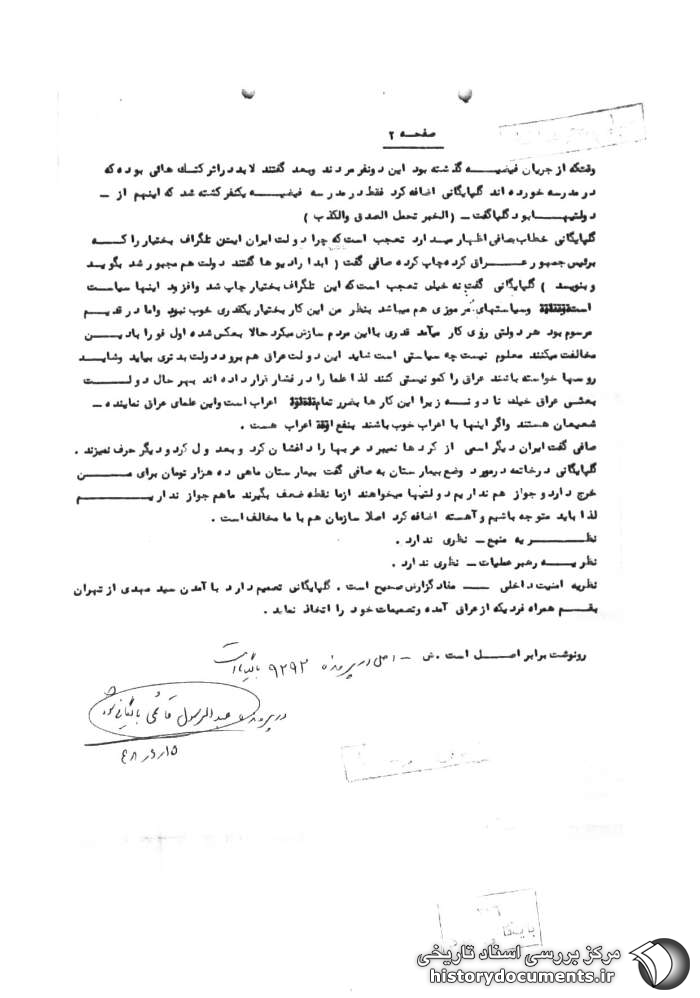 صفحه ۲
وقتیکه از جریان فیضیه گذشته بود این دونفر مردند وبعد گفتند لابد در اثر کتک هائی بوده که
در مدرسه خورده اند گلپایگانی اضافه کرد فقط در مدرسه فیضیه یکنفر کشته شد که اینهم از –
دولتیها بود گلپا گفت – (الخبر تحمل الصدق والکذب )
گلپایگانی خطاب بصافی اظهار میدارد تعجب است که چرا دولت ایران ایتن تلگراف بختیار را که
برئیس جمهور عراق کرده چاپ کرده صافی گفت ( ابدا رادیو ها گفتند دولت هم مجبور شد بگوید
و بنویسد ) گلپایگانی گفت نه خیلی تعجب است که این تلگراف بختیار چاپ شد وافزود اینها سیاست
است وسیاستهای مرموزی هم میباشد بنظر من این کار بختیار یکقدری خوب نبود واما در قدیم
مرسوم بود هر دولتی روی کار میآمد قدری با این مردم سازش میکرد حالا بعکس شده اول فورا با دین
مخالفت میکنند معلوم نیست چه سیاستی است شاید این دولت عراق هم برود دولت بدتری بیاید وشاید
روسها خواسته باشند عراق را کمونیستی کنند لذا علما را در فشار قرار داده اند بهر حال دولت
بعثی عراق خیلی نادونه زیرا این کار ها بضرر تمام اعراب است واین علمای عراق نماینده –
شیعیان هستند واگر اینها با اعراب خوب باشند بنفع اعراب هست .
صافی گفت ایران دیگر اسمی از کردها نمیبرد عربها را دافشان کرد و بعد ول کرد و دیگر حرف نمیزند .
گلپایگانی در خاتمه در مورد وضع بیمارستان به صافی گفت بیمارستان ماهی ده هزار تومان برای من
خرج دارد و جواز هم نداریم دولتیها میخواهند از ما نقطه ضعف بگیرند ماهم جواز نداریم
لذا باید متوجه باشیم و آهسته اضافه کرد اصلا سازمان هم با ما مخالف است .
نظریه منبع – نظری ندارد .
نظریه رهبر عملیات – نظری ندارد .
نظریه امنیت داخلی — مفاد گزارش صحیح است . گلپایگانی تصمیم دارد با آمدن سید مهدی از تهران
بقم همراه فردیکه از عراق آمده وتصمیمات خود را اتخاذ نماید .
رونوشت برابر اصل است . ش – اصل در پرونده ۹۲۹۲ بایگانی است
در پرونده عبدالرسول قائمی بایگانی شود
مرکز بررسی اسناد تاریخی
historydocuments.ir